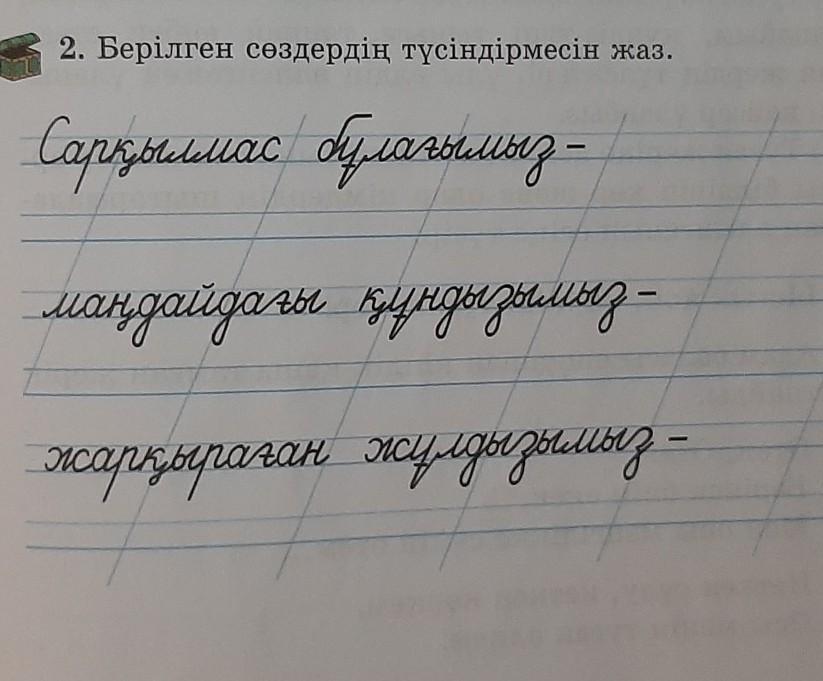 2. Берілген сөздердің түсіндірмесін жаз.
Сарқылмас бұлағымыз –
маңдайдағы құндызымыз –
жарқыраған жұлдызымыз –